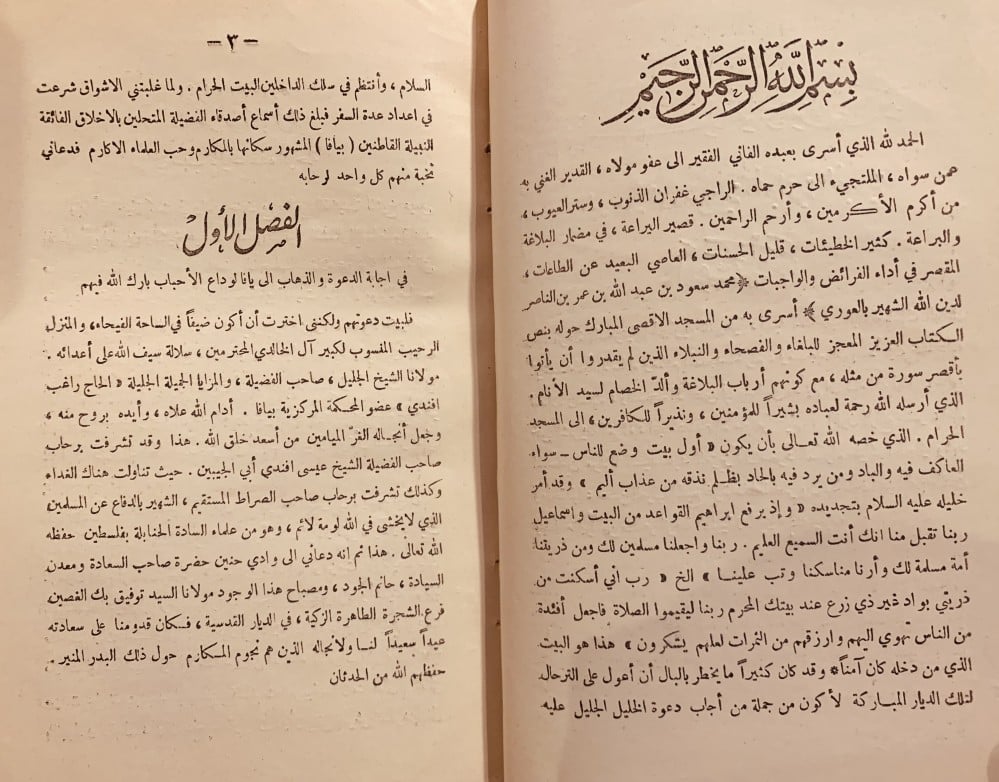 بسم الله الرحمن الرحيم
الحمد لله الذي أسرى بعبده الفاني الفقير الى عفو مولاه ، القدير الغني به
عمن سواه ، الملتجيء الى حرم حماه . الراجي غفران الذنوب ، وستر العيوب ،
من أكرم الأكرمين ، وأرحم الراحمين . قصير اليراعة ، في مضمار البلاغة
والبراعة . كثير الخطيئات ، قليل الحسنات ، العاصي البعيد عن الطاعات ،
المقصر في أداء الفرائض والواجبات ﴿محمد سعود بن عبد الله بن عمر بن الناصر
لدين الله الشهير بالعوري﴾ أسرى به من المسجد الاقصى المبارك حوله بنص
الكتاب العزيز المعجز للبلغاء والفصحاء والنبلاء الذين لم يقدروا أن يأتوا
بأقصر سورة من مثله ، مع كونهم أرباب البلاغة وألدّ الخصام لسيد الأنام .
الذي أرسله الله رحمة لعباده بشيراً للمؤمنين ، ونذيراً للكافرين ، إلى المسجد
الحرام . الذي خصه الله تعالى بأن يكون « أول بيت وضع للناس ــ سواء
العاكف فيه والباد ومن يرد فيه بالحاد بظلم نذقه من عذاب أليم » وقد أمر
خليله عليه السلام بتجديده « وإذ يرفع ابراهيم القواعد من البيت واسماعيل
ربنا تقبل منا انك أنت السميع العليم . ربنا واجعلنا مسلمين لك ومن ذريتنا
أمة مسلمة لك وأرنا مناسكنا وتب علينا » الخ « رب اني أسكنت من
ذريتي بواد غير ذي زرع عند بيتك المحرم ربنا ليقيموا الصلاة فاجعل أفئدة
من الناس تهوي اليهم وارزقهم من الثمرات لعلهم يشكرون » هذا هو البيت
الذي من دخله كان آمناً * وقد كان كثيراً ما يخطر بالبال أن أعول على الترحال
لتلك الديار المباركة لأكون من جملة من أجاب دعوة الخليل الجليل عليه
— ٣ —
السلام ، وأنتظم في سلك الداخلين البيت الحرام . ولما غلبتني الاشواق شرعت
في اعداد عدة السفر فبلغ ذلك أسماع أصدقاء الفضيلة المتحلين بالاخلاق الفائقة
النبيلة القاطنين ( بيافا ) المشهور سكانها بالمكارم وحب العلماء الاكارم فدعاني
نخبة منهم كل واحد لرحابه
الفصل الأول
في اجابة الدعوة والذهاب الى يافا لوداع الأحباب بارك الله فيهم
فلبيت دعوتهم ولكننى اخترت أن أكون ضيفاً في الساحة الفيحاء ، والمنزل
الرحيب المنسوب لكبير آل الخالدي المحترمين ، سلالة سيف الله على أعدائه .
مولانا الشيخ الجليل ، صاحب الفضيلة ، والمزايا الجميلة الجليلة « الحاج راغب
افندي » عضو المحكمة المركزية بيافا . أدام الله علاه ، وأيده بروح منه ،
وجعل أنجاله الغرّ الميامين من أسعد خلق الله . هذا وقد تشرفت برحاب
صاحب الفضيلة الشيخ عيسى افندي أبي الجبيبين . حيث تناولت هناك الغداء
وكذلك تشرفت برحاب صاحب الصراط المستقيم ، الشهير بالدفاع عن المسلمين
الذي لايخشى في الله لومة لائم ، وهو من علماء السادة الحنابلة بفلسطين حفظه
الله تعالى . هذا ثم انه دعاني الى وادي حنين حضرة صاحب السعادة ومعدن
السيادة ، حاتم الجود ، ومصباح هذا الوجود مولانا السيد توفيق بك الغصين
فرع الشجرة الطاهرة الزكية ، في الديار القدسية ، فكان قدومنا على سعادته
عيداً سعيداً لنا ولانجاله الذين هم نجوم المكارم حول ذلك البدر المنير .
حفظهم الله من الحدثان